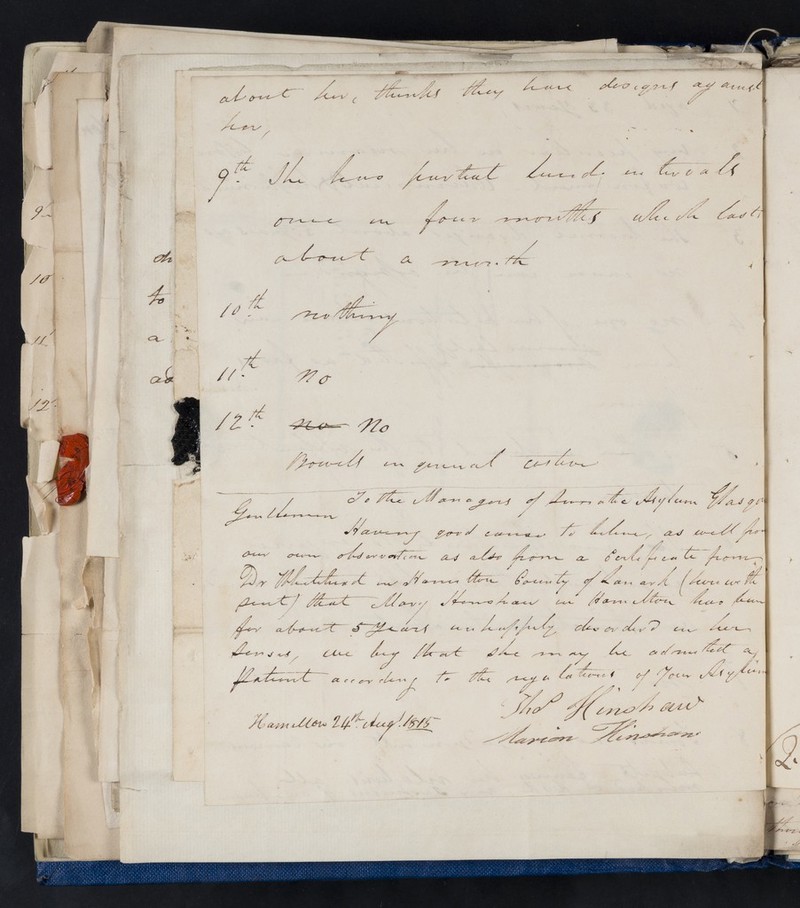 about her, thinks they have designs against
her,
9th She has partial lucid intervals
once in four months which lasts
about a month
10th nothing
11th No
12th no No
Bowels in general costive
To the Managers of Lunatic Asylum Glasgo
Gentlemen
Having good cause to believe, as well from
our own observation as also from a Certificate from
Dr in Hamilton County of Lanark (herewith
sent) that Mary Hinshaw in Hamilton has been
for about 5 Years unhappily disorder'd in her
Senses, we beg that she may be admitted a
Patient according to the regulations of Your Asylum
Thos Hinshaw
Hamilton 24th Augt 1815
Marion Hinshaw
9th
10
11
12
to
a